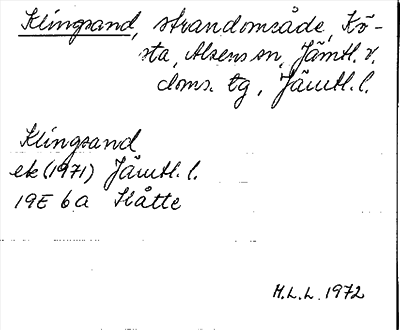 Klingsand, strandområde, Kö-
sta, Alsens sn, Jämtl. v.
doms. tg, Jämtl. l.
Klingsand
ek (1971) Jämtl. l.
19E 6a Kåtte
H.L.L. 1972